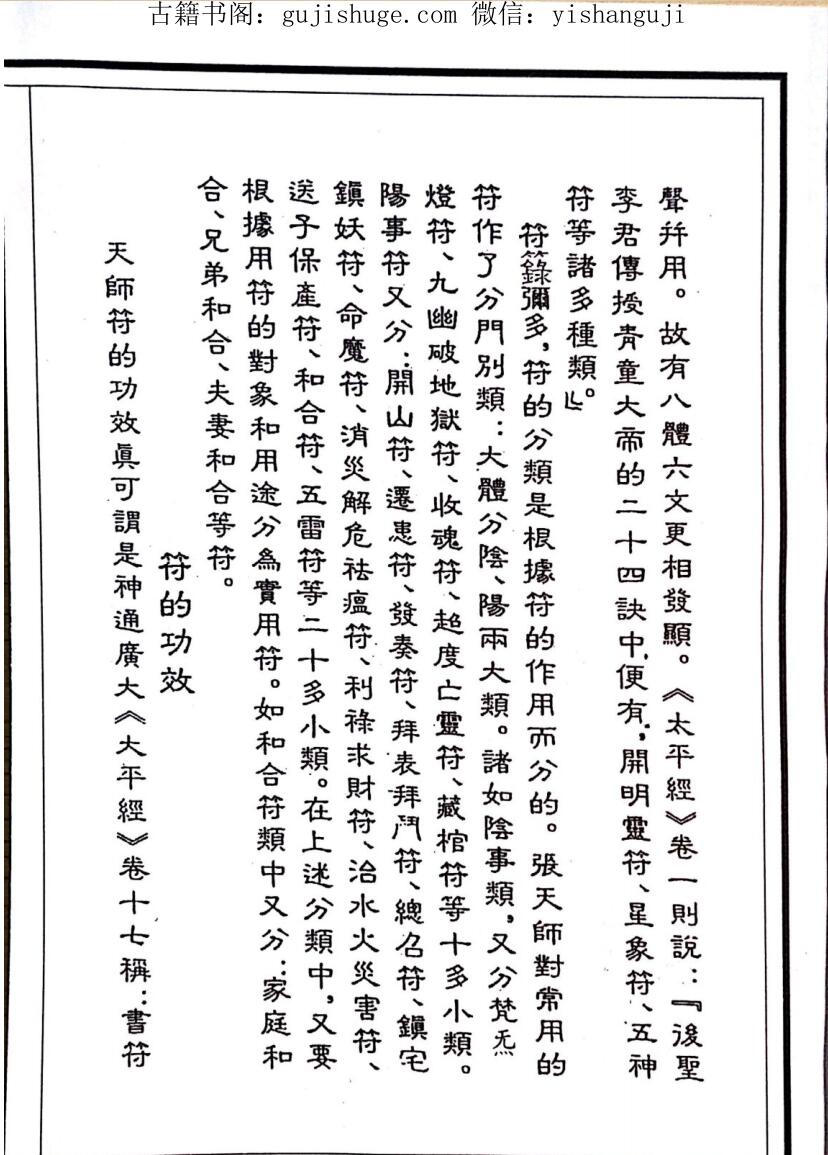 古籍书阁：gujishuge.com 微信：yishanguji
聲幷用。故有八體六文更相發顯。《太平經》卷一則說：『後聖
李君傳授青童大帝的二十四訣中，便有，開明靈符、星象符、五神
符等諸多種類。』
符籙彌多，符的分類是根據符的作用而分的。張天師對常用的
符作了分門別類：大體分陰、陽兩大類。諸如陰事類，又分梵炁
燈符、九幽破地獄符、收魂符、超度亡靈符、藏棺符等十多小類。
陽事符又分：開山符、遷患符、發奏符、拜表拜鬥符、總召符、鎭宅
鎭妖符、命魔符、消災解危祛瘟符、利祿求財符、治水火災害符、
送子保產符、和合符、五雷符等二十多小類。在上述分類中，又要
根據用符的對象和用途分為實用符。如和合符類中又分：家庭和
合、兄弟和合、夫妻和合等符。
符的功效
天師符的功效眞可謂是神通廣大《大平經》卷十七稱：書符